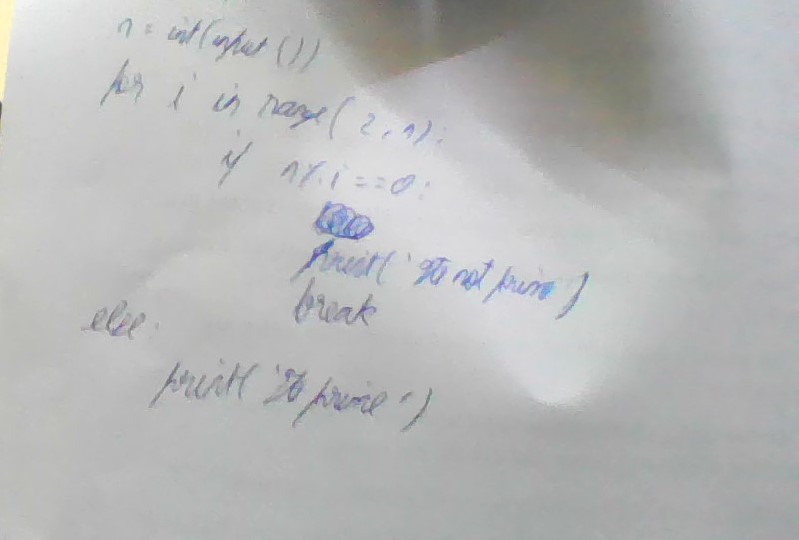 n = int(input())
for i in range(2, n):
if n%i==0:
print('Its not prime')
break
else:
print('Its prime')